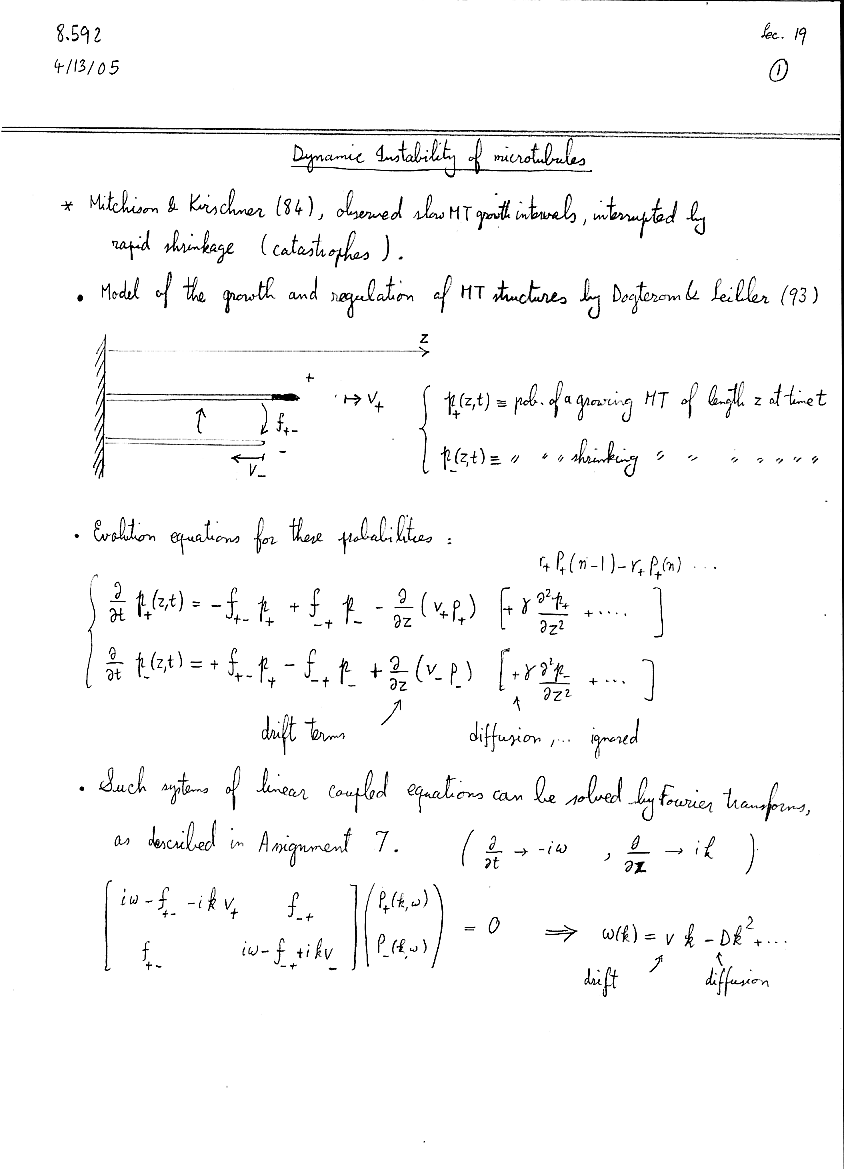 8.592
Lec. 19
4/13/05
①
Dynamic Instability of microtubules
* Mitchison & Kirschner (84), observed slow MT growth intervals, interrupted by
rapid shrinkage (catastrophes).
• Model of the growth and regulation of MT structures by Dogterom & Leibler (93)
z
+
↦ v₊
p₊(z,t) ≡ prob. of a growing MT of length z at time t
f₊₋
-
v₋
p₋(z,t) ≡ " " " shrinking " " " " " " "
• Evolution equations for these probabilities :
r₊ P₊(n-1) - r₊ P₊(n) ...
∂/∂t p₊(z,t) = -f₊₋ p₊ + f₋₊ p₋ - ∂/∂z (v₊p₊) [+ γ ∂²p₊/∂z² + .... ]
∂/∂t p₋(z,t) = + f₊₋ p₊ - f₋₊ p₋ + ∂/∂z (v₋p₋) [+ γ ∂²p₋/∂z² + ... ]
drift terms
diffusion, ... ignored
• Such systems of linear coupled equations can be solved by Fourier transforms,
as described in Assignment 7. ( ∂/∂t → -iω , ∂/∂z → ik )
[ iω - f₊₋ - ik v₊ f₋₊ ] ( P₊(k,ω) )
= 0 ⟹ ω(k) = v k - Dk² + ...
[ f₊₋ iω - f₋₊ + ikv₋ ] ( P₋(k,ω) )
drift
diffusion